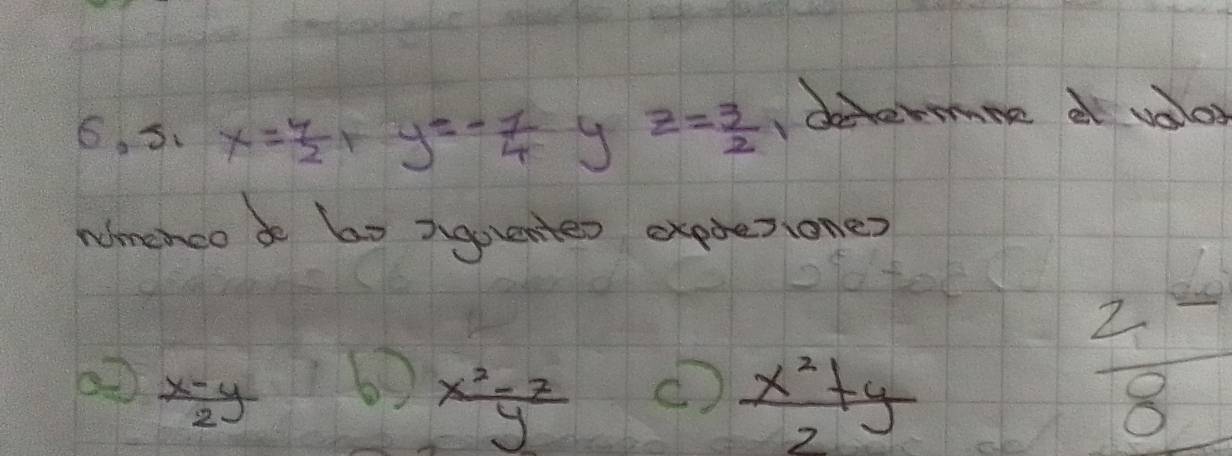 6. Si x = 7/2, y = -7/4 y z = 3/2, determine el valor
númerico de las siguientes expresiones
a) x-y/2 b) x²-z/y c) x²+y/2
2
8